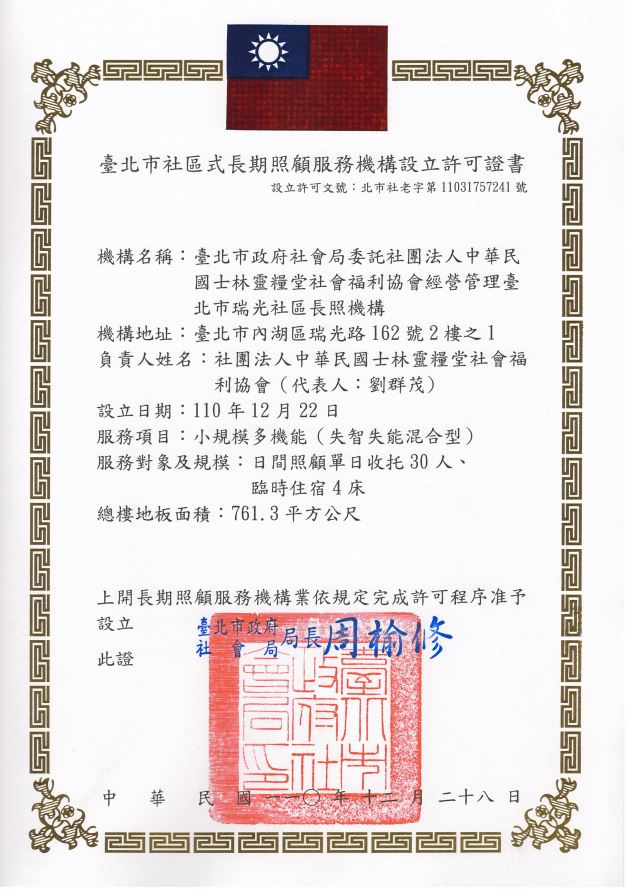 臺北市社區式長期照顧服務機構設立許可證書
設立許可文號：北市社老字第 1103175724I 號
機構名稱：臺北市政府社會局委託社團法人中華民
國士林靈糧堂社會福利協會經營管理臺
北市瑞光社區長照機構
機構地址：臺北市內湖區瑞光路 162 號 2 樓之 1
負責人姓名：社團法人中華民國士林靈糧堂社會福
利協會（代表人：劉群茂）
設立日期：110 年 12 月 22 日
服務項目：小規模多機能（失智失能混合型）
服務對象及規模：日間照顧單日收托 30 人、
臨時住宿 4 床
總樓地板面積：761.3 平方公尺
上開長期照顧服務機構業依規定完成許可程序准予
設立
臺北市政府
社會局局長周榆修
此證
臺北市政府社會局印
中華民國一一〇年十二月二十八日